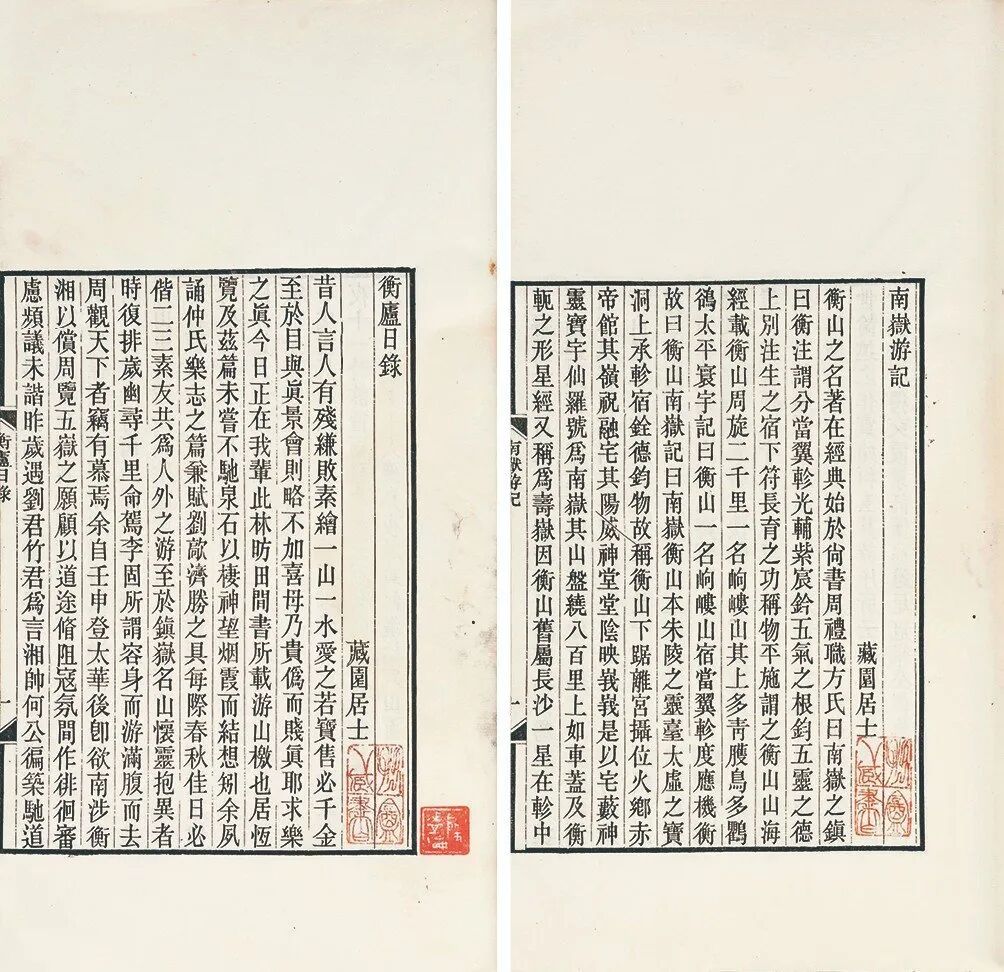 南嶽游記
藏園居士
衡山之名著在經典始於尙書周禮職方氏曰南嶽之鎮
曰衡注謂分當翼軫光輔紫宸鈐五氣之根鈞五靈之德
上別注生之宿下符長育之功稱物平施謂之衡山山海
經載衡山周旋二千里一名岣嶁山其上多靑雘鳥多鸜
鵒太平寰宇記曰衡山一名岣嶁山宿當翼軫度應機衡
故曰衡山南嶽記曰南嶽衡山本朱陵之靈臺太虛之寶
洞上承軫宿銓德鈞物故稱衡山下踞離宮攝位火鄉赤
帝館其嶺祝融宅其陽威神堂堂陰映峩峩是以宅藪神
靈寶宇仙羅號爲南嶽其山盤繞八百里上如車蓋及衡
軛之形星經又稱爲壽嶽因衡山舊屬長沙一星在軫中
南嶽游記
一
衡廬日錄
藏園居士
昔人言人有殘縑敗素繪一山一水愛之若寶售必千金
至於目與眞景會則略不加喜毋乃貴僞而賤眞耶求樂
之眞今日正在我輩此林昉田間書所載游山檄也居恆
覽及茲篇未嘗不馳泉石以棲神望烟霞而結想矧余夙
誦仲氏樂志之篇兼賦劉歊濟勝之具每際春秋佳日必
偕二三素友共爲人外之游至於鎭嶽名山懷靈抱異者
時復排歲幽尋千里命駕李固所謂容身而游滿腹而去
周觀天下者竊有慕焉余自壬申登太華後卽欲南涉衡
湘以償周覽五嶽之願顧以道途脩阻寇氛間作徘徊審
慮頻議未諧昨歲遇劉君竹君爲言湘帥何公徧築馳道
衡廬日錄
一